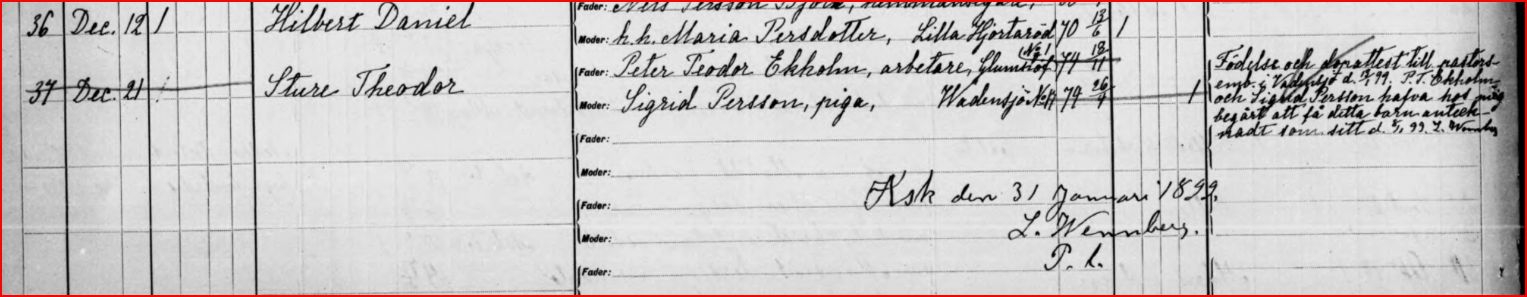 Fader: Nils Persson Björk, hemmansägare,
36 Dec. 12 1 Hilbert Daniel
Moder: h. h. Maria Persdotter, Lilla Hjortaröd 70 13/6 1
Fader: Peter Teodor Ekholm, arbetare, Glumslöf No 1 74 18/11
37 Dec. 21 1 Sture Theodor
Moder: Sigrid Persson, piga, Wadensjö No 74 26/ 1
Födelse och dopattest till pastors-
emb. i Vadensjö d. /1 99. P. T. Ekholm
och Sigrid Persson hafva hos mig
begärt att få detta barn anteck-
nadt som sitt d. /1 99 L. Wennberg
Fader:
Moder:
Ask den 31 Januari 1899.
Fader:
L. Wennberg.
Moder:
P. l.
Fader: